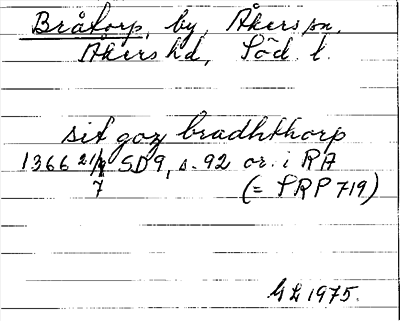 Bråtorp, by, Åkers sn,
Åkers hd, Söd. l.
sit goz bradhthorp
1366 21/7 SD 9, s. 92 or. i RA
(= SRP 719)
GL 1975.